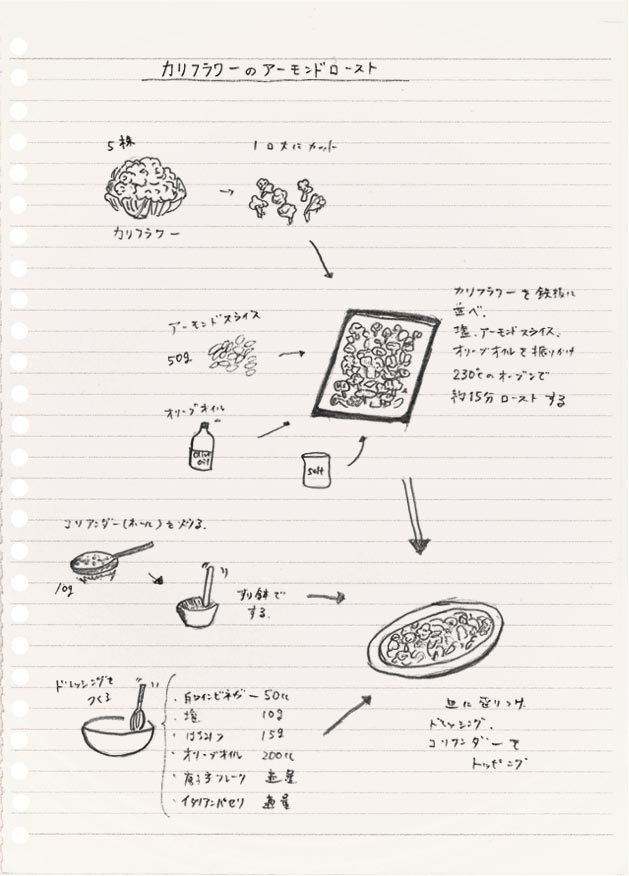 カリフラワーのアーモンドロースト
5株
1口大にカット
カリフラワー
アーモンドスライス
50g
オリーブオイル
olive
oil
salt
カリフラワーを鉄板に
並べ、
塩、アーモンドスライス、
オリーブオイルを振りかけ
230℃のオーブンで
約15分ローストする
コリアンダー(ホール)を炒る。
10g
すり鉢で
する。
ドレッシングを
つくる
・白ワインビネガー 50cc
・塩 10g
・はちみつ 15g
・オリーブオイル 200cc
・唐辛子フレーク 適量
・イタリアンパセリ 適量
皿に盛りつけ
ドレッシング、
コリアンダーを
トッピング